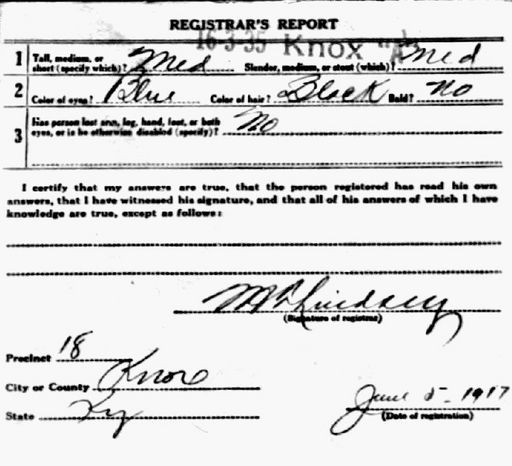 REGISTRAR'S REPORT
16-3-35 Knox "A"
1 Tall, medium, or short (specify which)? Med Slender, medium, or stout (which)? Med
2 Color of eyes? Blue Color of hair? Black Bald? No
3 Has person lost arm, leg, hand, foot, or both
eyes, or is he otherwise disabled (specify)? No
I certify that my answers are true, that the person registered has read his own
answers, that I have witnessed his signature, and that all of his answers of which I have
knowledge are true, except as follows:
Lindsey
(Signature of registrar)
Precinct 18
City or County Knox
State Ky
June 5-1917
(Date of registration)